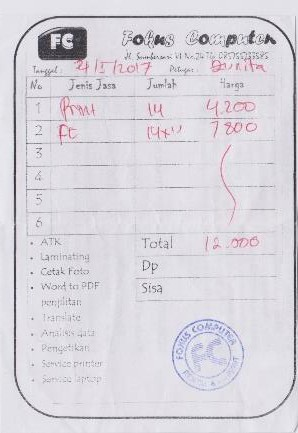 FC Fokus Computer
Jl. Sumbersari VI No.
Tanggal : 2/5/2017 Petugas :
No Jenis Jasa Jumlah Harga
1 Print 14 4.200
2 FC 7800
3
4
5
6
• ATK Total 12.000
• Laminating Dp
• Cetak Foto Sisa
• Word to PDF
penjilitan
• Translate
• Analisis data
• Pengetikan
• Service printer
• Service laptop
FOKUS COMPUTER
FC